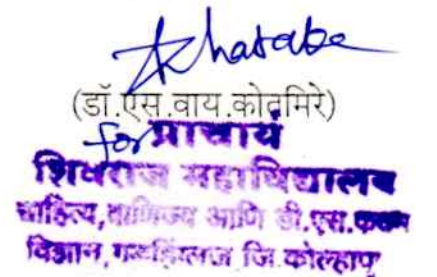 (डॉ.एस.वाय.कोतमिरे)
for प्राचार्य
शिवराज महाविद्यालय
साहित्य,वाणिज्य आणि डी.एस.कदम
विज्ञान,गडहिंग्लज जि.कोल्हापूर